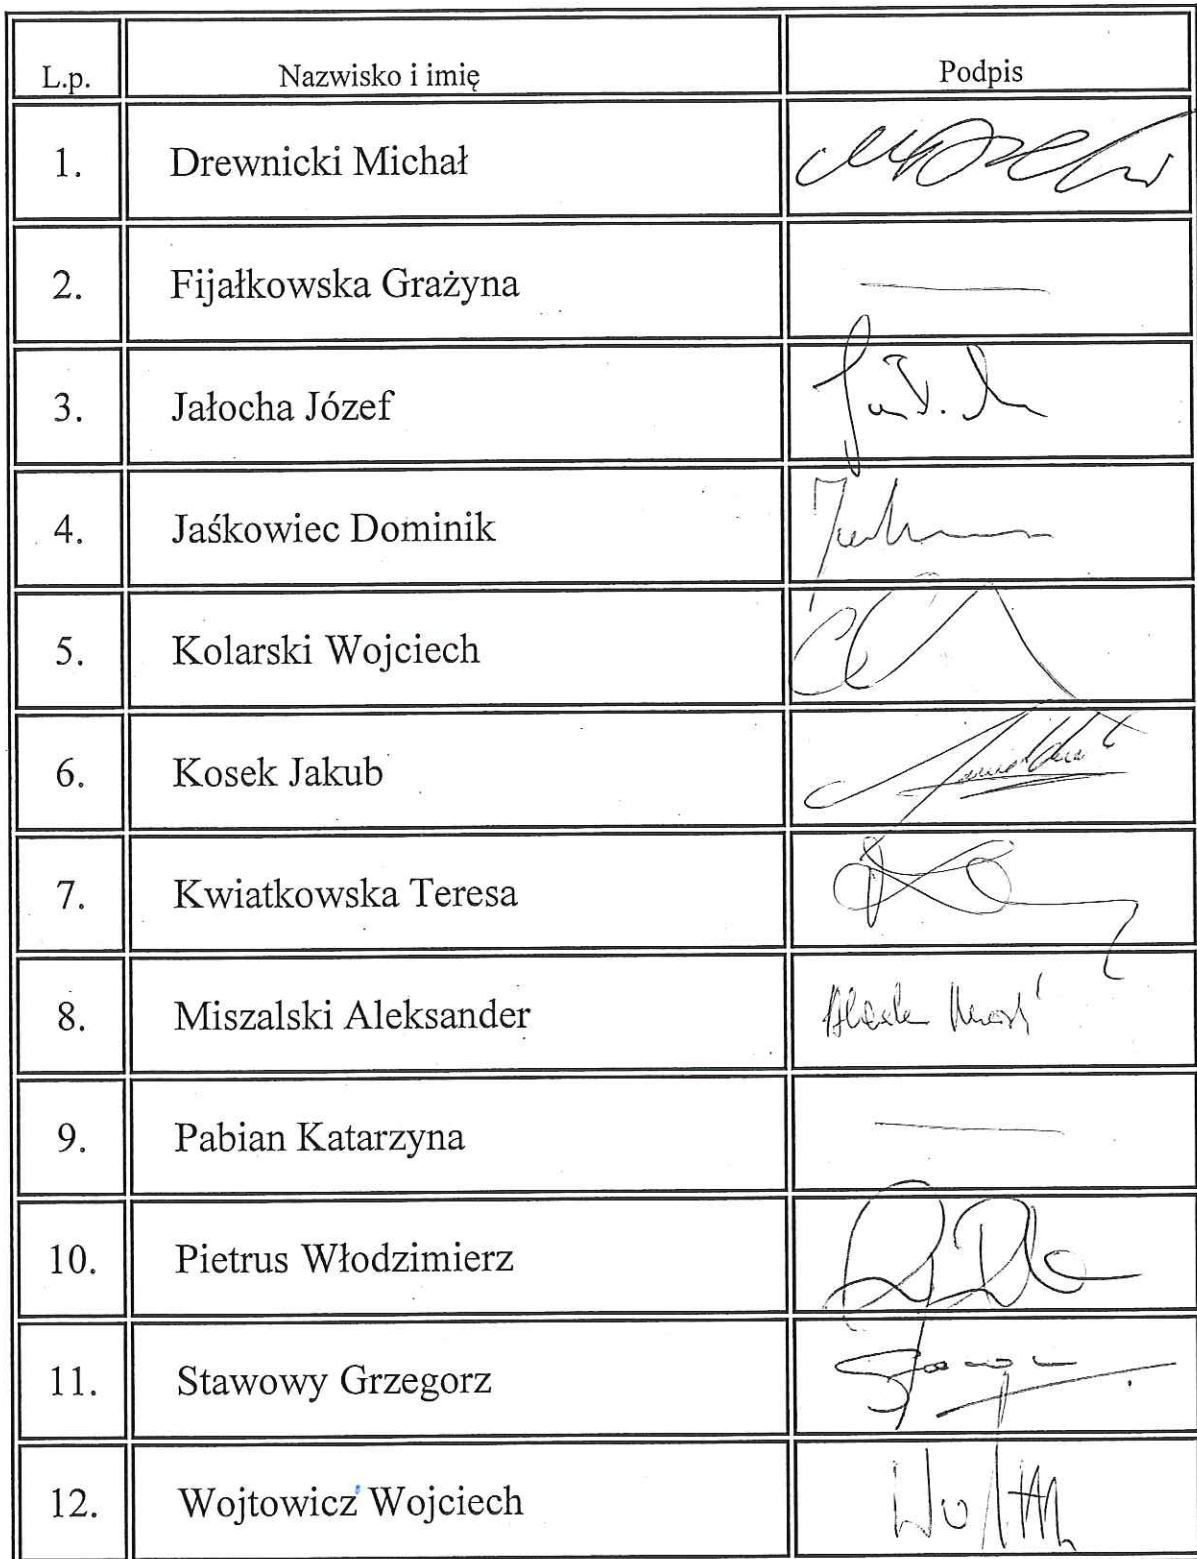 L.p. Nazwisko i imię Podpis
1. Drewnicki Michał
2. Fijałkowska Grażyna —
3. Jałocha Józef
4. Jaśkowiec Dominik
5. Kolarski Wojciech
6. Kosek Jakub
7. Kwiatkowska Teresa
8. Miszalski Aleksander
9. Pabian Katarzyna —
10. Pietrus Włodzimierz
11. Stawowy Grzegorz
12. Wojtowicz Wojciech